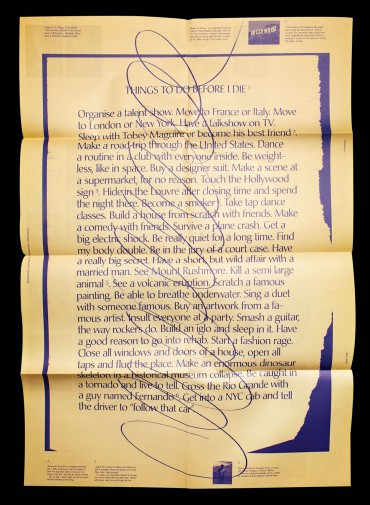 THINGS TO DO BEFORE I DIE
Organise a talent show. Move to France or Italy. Move
to London or New York. Have a talkshow on TV.
Sleep with Tobey Maguire or become his best friend.
Make a road-trip through the United States. Dance
a routine in a club with everyone inside. Be weight-
less, like in space. Buy a designer suit. Make a scene at
a supermarket, for no reason. Touch the Hollywood
sign. Hide in the Louvre after closing time and spend
the night there. Become a smoker. Take tap dance
classes. Build a house from scratch with friends. Make
a comedy with friends. Survive a plane crash. Get a
big electric shock. Be really quiet for a long time. Find
my body double. Be in the jury of a court case. Have
a really big secret. Have a short, but wild affair with a
married man. See Mount Rushmore. Kill a semi large
animal. See a volcanic eruption. Scratch a famous
painting. Be able to breathe underwater. Sing a duet
with someone famous. Buy an artwork from a fa-
mous artist. Insult everyone at a party. Smash a guitar,
the way rockers do. Build an iglo and sleep in it. Have
a good reason to go into rehab. Start a fashion rage.
Close all windows and doors of a house, open all
taps and flud the place. Make an enormous dinosaur
skeleton in a historical museum collapse. Be caught in
a tornado and live to tell. Cross the Rio Grande with
a guy named Fernando. Get into a NYC cab and tell
the driver to "follow that car".
HOLLYWOOD